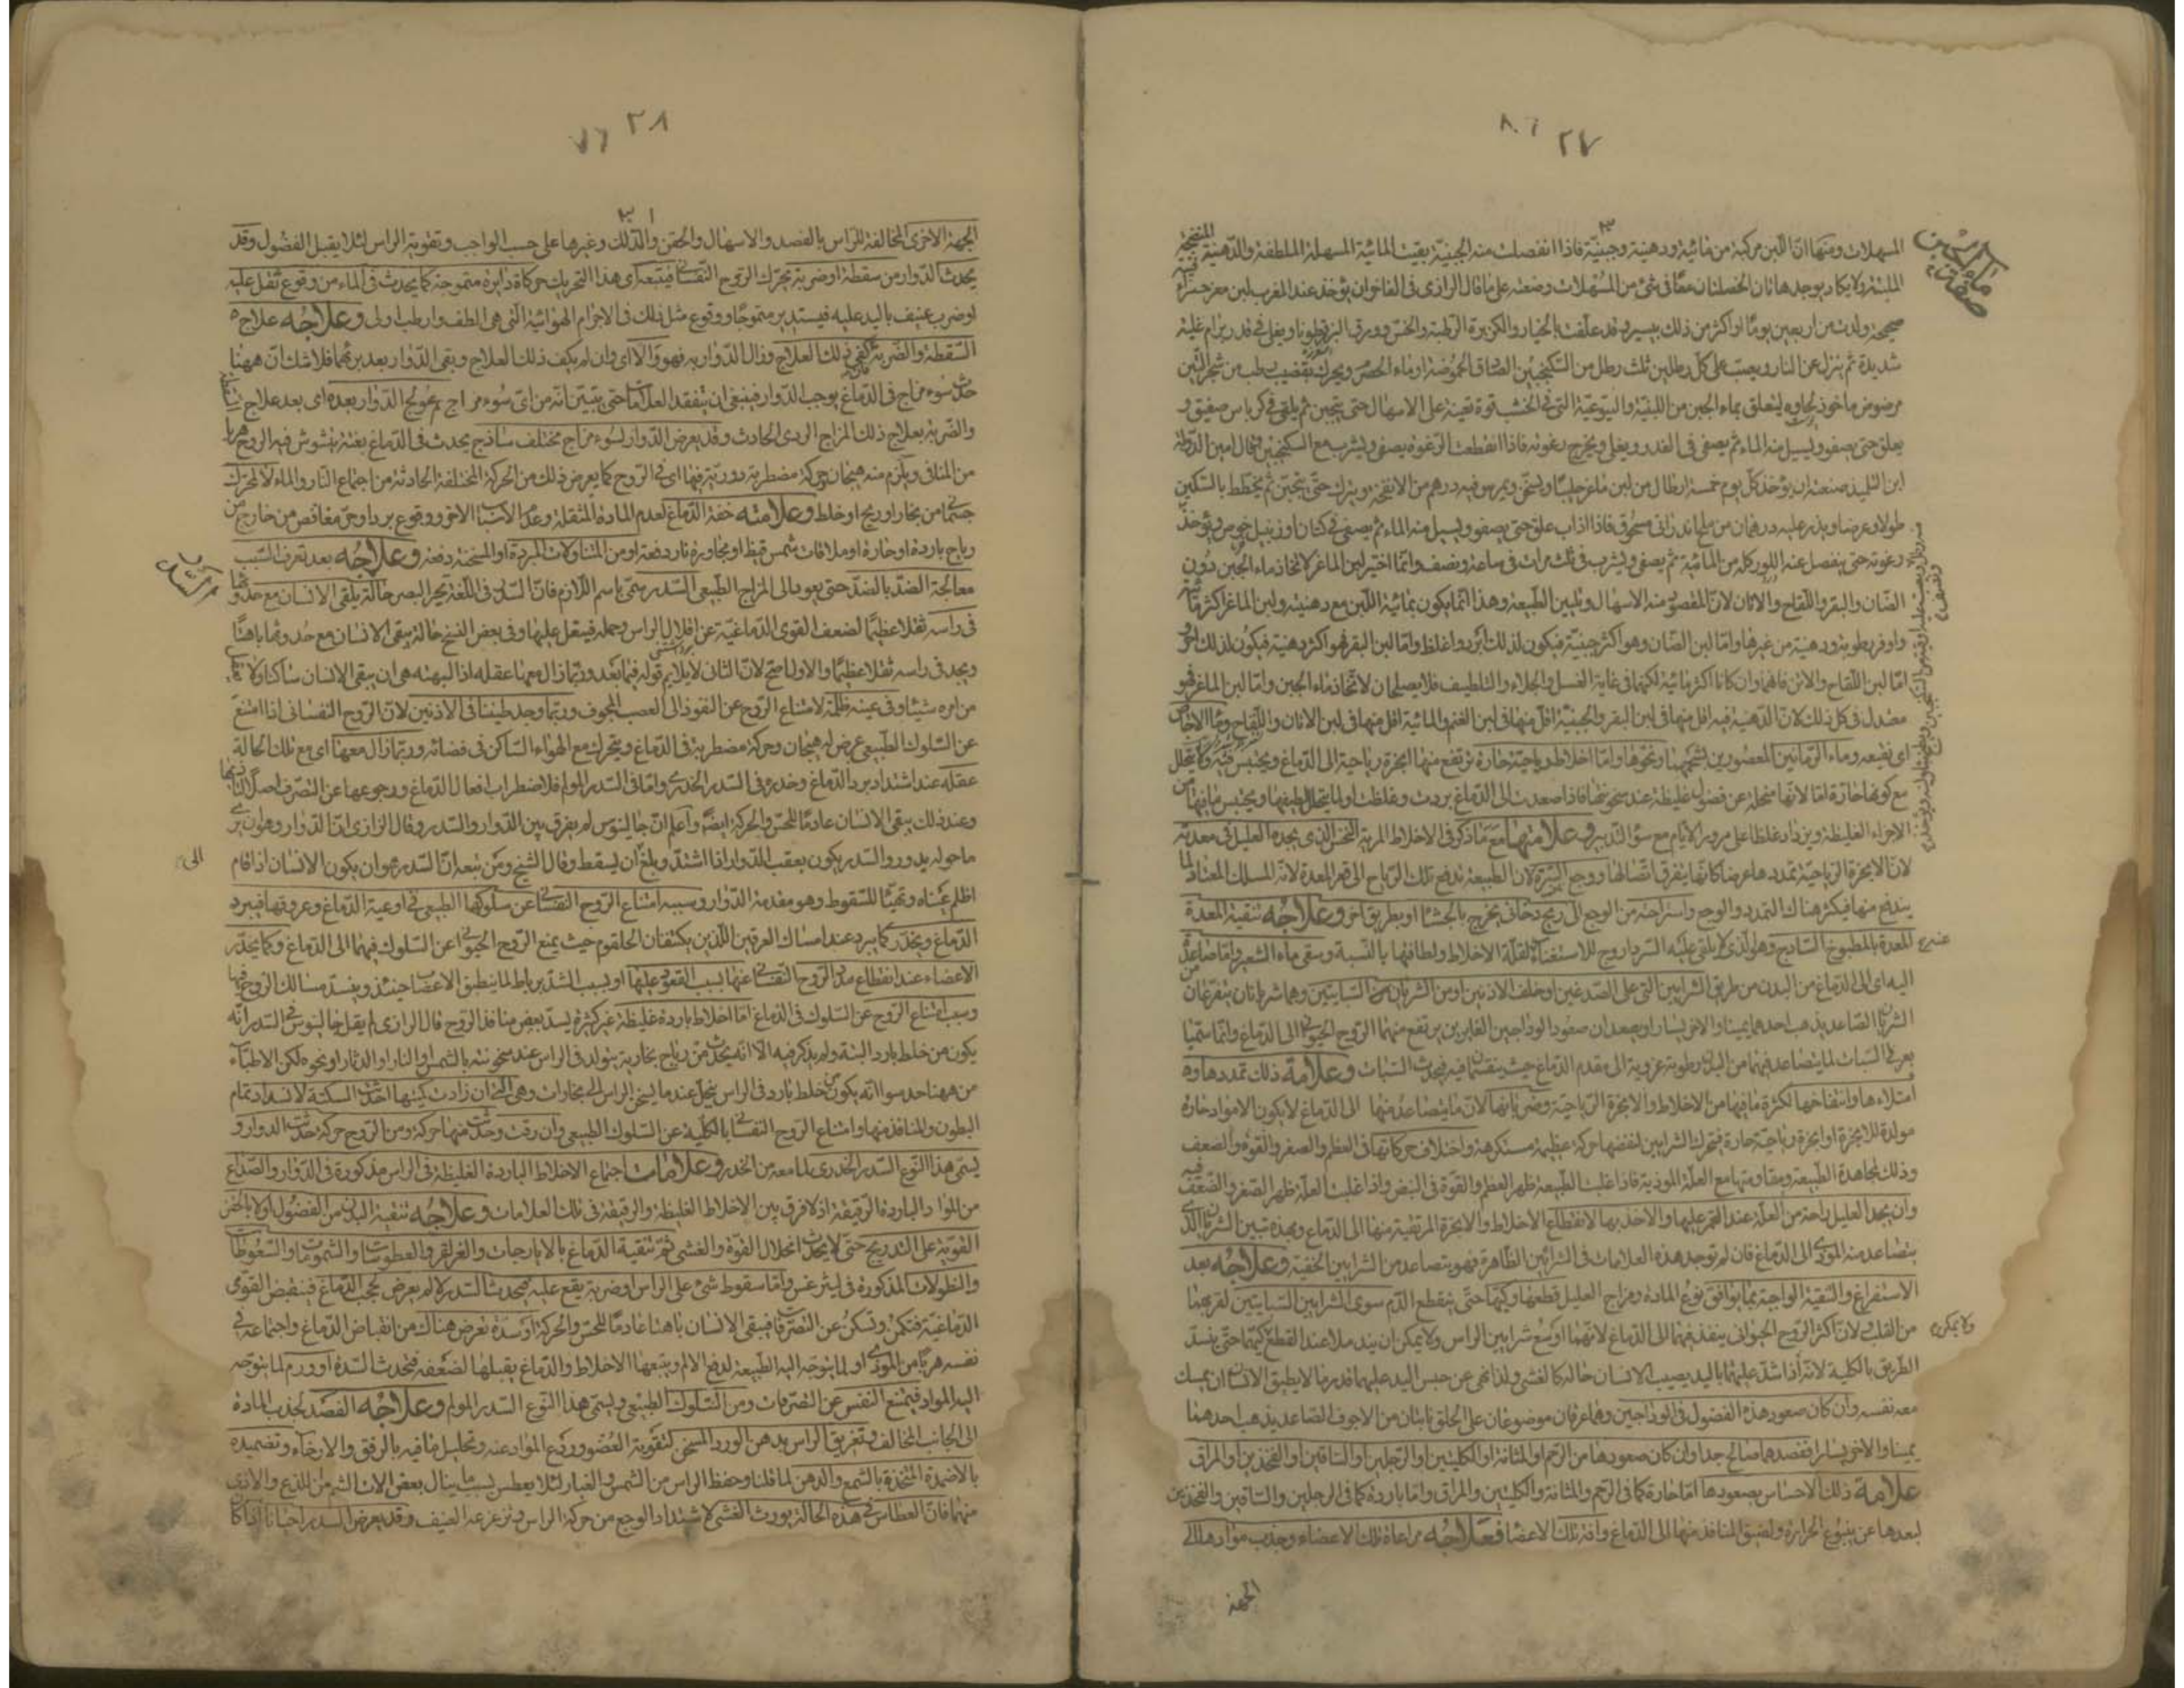 ٢٧
المسهلات ومنها ان اللبن مركبة من مائية ودهنية وجبنية فاذا انفصلت منه الجبنية بقيت المائية المسهلة الملطفة والدهنية المنضجة
ماء الجبن
صفة
الملينة ولا يكاد يوجد هاتان الخصلتان معًا فى شئ من المسهلات وصنعته على ما قال الرازى فى الفاخر ان يؤخذ عند المغرب لبن معز حمراء
صحيحة ولدت من اربعين يومًا او اكثر من ذلك بيسير وقد علفت بالخيار والكزبرة الرطبة والخس وورق البزرقطونا ويغلى فى قدر برام غلية
شديدة ثم ينزل عن النار ويصب على كل رطلين ثلث رطل من السكنجبين الصادق الحموضة او ماء الحصرم ويحرك بقضيب رطب من شجر التين
مرضوض ماخوذ لحاؤه ليتعلق بماء الجبن من اللبنية واليتوعية التى فى الخشب قوة تعينه على الاسهال حتى يتجبن ثم يلقى فى كرباس صفيق و
يعلق حتى يصفو ويسيل منه الماء ثم يصفى فى القدر ويغلى ويخرج رغوته فاذا انقطعت الرغوة يصفى ويشرب مع السكنجبين وقال امين الدولة
ابن التلميذ صنعته ان يؤخذ كل يوم خمسة ارطال من لبن ماعز حليبًا ويسخن ويمرس فيه درهم من الانفحة ويترك حتى يتجبن ثم يخطط بالسكين
طولا وعرضا ويذر عليه درهمان من ملح اندرانى مسحوق فاذا ذاب علق حتى يصفو ويسيل منه الماء ثم يصفى فى كتان او زنبيل خوص ويؤخذ
رغوته حتى ينفصل عنه اللور كله من المائية ثم يصفى ويشرب فى ثلث مرات فى ساعة ونصف وانما اختير لبن الماعز لاتخاذ ماء الجبن دون
الضأن والبقر واللقاح والاتان لان المقصود منه الاسهال وتليين الطبيعة وهذا انما يكون بمائية اللبن مع دهنيته ولبن الماعز اكثر مائية
واوفر رطوبة ودهنية من غيرها واما لبن الضان وهو اكثر جبنية فيكون لذلك ابرد واغلظ واما لبن البقر فهو اكثر دهنية فيكون لذلك احر
اما لبن اللقاح والاتن فانهما وان كانا اكثر مائية لكنهما فى غاية الغسل والجلاء والتلطيف فلا يصلحان لاتخاذ ماء الجبن واما لبن الماعز فهو
معتدل فى كل ذلك لان الدهنية فيه اقل منها فى لبن البقر والجبنية اقل منها فى لبن الغنم والمائية اقل منها فى لبن الاتان واللقاح وماء الاجاص
اى نقيعه وماء الرمانين المعصورين بشحمهما ونحوها واما اخلاط رياحية حارة ترتفع منها ابخرة رياحية الى الدماغ ويحتبس فيه ولا يتحلل
مع كونها حارة اما لانها منحلة عن فضول غليظة عند سخونتها فاذا صعدت الى الدماغ بردت وغلظت او لما يتحلل لطيفها ويحتبس ما فيها من
الاجزاء الغليظة ويزداد غلظا على مرور الايام مع سوء التدبير وعلامتها مع ما ذكر فى الاخلاط المرية النخس الذى يجده العليل فى معدته
لان الابخرة الرياحية تمددها عرضا كانها يتفرق اتصالها ووجع السرة لان الطبيعة تدفع تلك الرياح الى قعر المعدة لانه المسلك المعتاد لما
يندفع منها فيكثر هناك التمدد والوجع واستراحته من الوجع الى ريح دخانى يخرج بالجشاء او بطريق اخر وعلاجه تنقية المعدة
المعدة بالمطبوخ الساذج وهو الذى لا يلقى عليه السرداروج للاستغناء لقلة الاخلاط ولطافتها بالنسبة وسقى ماء الشعير واما صاعدة
اليه اى الى الدماغ من البدن من طريق الشرايين التى على الصدغين او خلف الاذنين او من الشريانين السباتيين وهما شريانان يتفرعان من
الشريان الصاعد يذهب احدهما يمينا والاخر يسارا ويصعدان صعود الوداجين الغايرين يرتفع منهما الروح الحيوانى الى الدماغ وانما سميا
بعرقى السبات لما يتصاعد فيهما من البدن رطوبة غروية الى مقدم الدماغ حيث ينقسمان فيه فيحدث السبات وعلامة ذلك تمددها و
امتلاءها وانتفاخها لكثرة ما فيها من الاخلاط والابخرة الرياحية وضربانها لان ما يتصاعد منها الى الدماغ لا يكون الا مواد حارة
مولدة للابخرة او ابخرة رياحية حارة فيتحرك الشرايين لنفضها حركة عظيمة مستكرهة واختلاف حركاتها فى العظم والصغر والقوة والضعف
وذلك لمجاهدة الطبيعة ومقاومتها مع العلة الموذية فاذا غلبت الطبيعة ظهر العظم والقوة فى النبض واذا غلبت العلة ظهر الصغر والضعف فيه
وان يجد العليل راحة من العلة عند الغمز عليها والاخذ بها لانقطاع الاخلاط والابخرة المرتقية منها الى الدماغ وبهذه تبين الشريان الذى
يتصاعد منه الموذى الى الدماغ فان لم توجد هذه العلامات فى الشرايين الظاهرة فهو يتصاعد من الشرايين الخفية وعلاجه بعد
الاستفراغ والتنقية الواجبة بما يوافق نوع المادة ومزاج العليل قطعها وكيها حتى ينقطع الدم سوى الشرايين السباتيين لقربهما
من القلب ولان اكثر الروح الحيوانى ينفذ فيهما الى الدماغ لانهما اوسع شرايين الراس ولا يمكن ان يندملا عند القطع كيهما حتى ينسد
ولا يمكن
الطريق بالكلية لانه اذا شد عليهما باليد يصيب الانسان حالة كالغشى ولذا نهى عن حبس اليد عليهما قدر ما لا يطيق الانسان ان يمسك
معه نفسه وان كان صعود هذه الفضول فى الوداجين وهما عرقان موضوعان على الحلق نابتان من الاجوف الصاعد يذهب احدهما
يمينا والاخر يسارا ففصدهما صالح جدا وان كان صعودها من الرحم او المثانة او الكليتين او الرجلين او الساقين او الفخذين او المراق
علامة ذلك الاحساس بصعودها اما حارة كما فى الرحم والمثانة والكليتين والمراق واما باردة كما فى الرجلين والساقين والفخذين
لبعدها عن ينبوع الحرارة ولضيق المنافذ منها الى الدماغ وافة تلك الاعضا فعلاجه مراعاة تلك الاعضاء وجذب موادها الى
الجهة
٢٨
الجهة الاخرى المخالفة للراس بالفصد والاسهال والحقن والدلك وغيرها على حسب الواجب وتقوية الراس لئلا يقبل الفضول وقد
يحدث الدوار من سقطة او ضربة يحرك الروح النفسانى فيتبعه اى هذا التحريك حركة دايرة متموجة كما يحدث فى الماء من وقوع ثقل عليه
او ضرب عنيف باليد عليه فيستدير متموجًا ووقوع مثل ذلك فى الاجرام الهوائية التى هى الطف وارطب اولى وعلاجه علاج
السقطة والضربة فان كفى ذلك العلاج وزال الدوار به فهو والا اى وان لم يكف ذلك العلاج وبقى الدوار بعد برئهما فلا شك ان ههنا
حدث سوء مزاج فى الدماغ يوجب الدوار فينبغى ان يتفقد العلامات حتى يتبين انه من اى سوء مزاج ثم عولج الدوار بعده اى بعد علاج السقطة
والضربة بعلاج ذلك المزاج الردى الحادث وقد يعرض الدوار لسوء مزاج مختلف ساذج يحدث فى الدماغ بغتة يتشوش فيه الروح هربا
من المنافى ويلزم منه هيجان وحركة مضطربة دورية فيها اى فى الروح كما يعرض ذلك من الحركة المختلفة الحادثة من اجتماع النار والماء لا لمحرك
جسمى من بخار او ريح او خلط وعلامته خفة الدماغ لعدم المادة المثقلة وعدم الاسباب الاخر ووقوع برد او حر مغافص من خارج من
رياح باردة او حارة او ملاقات شمس قيظ او مجاورة نار دفعة او من المتناولات المبردة او المسخنة دفعة وعلاجه بعد تعرف السبب
معالجة الضد بالضد حتى يعود الى المزاج الطبيعى السدر سمى باسم اللازم فان السدر فى اللغة تحير البصر حالة يلقى الانسان مع حدوثها
السدر
فى راسه ثقلا عظيمًا لضعف القوى الدماغية عن اقلال الراس وحمله فيثقل عليها وفى بعض النسخ حالة يبقى الانسان مع حدوثها باهتًا
ويجد فى راسه ثقلا عظيمًا والاول اصح لان الثانى لا يلايم قوله فيما بعد وربما زال معها عقله اذ البهتة هى ان يبقى الانسان ساكتا ولا يعقل
من امره شيئا وفى عينه ظلمة لامتناع الروح عن النفوذ الى العصب المجوف وربما وجد طنينا فى الاذنين لان الروح النفسانى اذا امتنع
عن السلوك الطبيعى عرض له هيجان وحركة مضطربة فى الدماغ ويتحرك مع الهواء الساكن فى فضائه وربما زال معها اى مع تلك الحالة
عقله عند اشتداد برد الدماغ وخدره فى السدر الخدرى واما فى السدر المولم فلاضطراب افعال الدماغ ورجوعها عن التصرف اصلًا
وعند ذلك يبقى الانسان عادمًا للحس والحركة ايضًا واعلم ان جالينوس لم يفرق بين الدوار والسدر وقال الرازى ان الدوار وهو ان يرى
ما حوله يدور والسدر يكون بعقب الدوار اذا اشتد وبلغ ان يسقط وقال الشيخ ومن تبعه ان السدر هو ان يكون الانسان اذا قام
اظلم عيناه وتهيّأ للسقوط وهو مقدمة الدوار وسببه امتناع الروح النفسانى عن سلوكها الطبيعى فى اوعية الدماغ وعروقها فيبرد
الدماغ ويخدر كما يبرد عند امساك العرقين اللذين يكتنفان الحلقوم حيث يمنع الروح الحيوانى عن السلوك فيهما الى الدماغ وكما يخدر
الاعضاء عند انقطاع مدد الروح النفسانى عنها بسبب القعود عليها او بسبب الشد برباط لما ينطبق الاعصاب حينئذ وينسد مسالك الروح فيها
وسبب امتناع الروح عن السلوك فى الدماغ اما اخلاط باردة غليظة غير كثيرة يسد بعض منافذ الروح قال الرازى لم يقل جالينوس فى السدر انه
يكون من خلط بارد البتة ولم يذكر فيه الا انه يحدث من رياح بخارية يتولد فى الراس عند سخونته بالشمس او النار او الدثار او نحوه لكن الاطباء
من ههنا حدسوا انه يكون من خلط بارد فى الراس ينحل عند ما يسخن الراس الى بخارات وهى التى ان زادت كميتها احدثت السكتة لانسداد تمام
البطون والمنافذ منها وامتناع الروح النفسانى بالكلية عن السلوك الطبيعى وان رقت وحدثت منها حركة ومن الروح حركة حدثت الدوار و
يسمى هذا النوع السدر الخدرى لما معه من الخدر وعلامات اجتماع الاخلاط الباردة الغليظة فى الراس مذكورة فى الدوار والصداع
من المواد الباردة الرقيقة اذ لا فرق بين الاخلاط الغليظة والرقيقة فى تلك العلامات وعلاجه تنقية البدن من الفضول اولا بالحقن
القوية على التدريج حتى لا يحدث انحلال القوة والغشى ثم تنقية الدماغ بالايارجات والغراغر والعطوسات والشمومات والسعوطات
والنطولات المذكورة فى ليثرغس واما سقوط شئ على الراس او ضربة يقع عليه فيحدث السدر لالم يعرض لحجب الدماغ فينقبض القوى
الدماغية فتكمن وتسكن عن التصرفات فيبقى الانسان باهتا عادمًا للحس والحركة او سدة تعرض هناك من انقباض الدماغ واجتماعه فى
نفسه هربًا من الموذى او لما يتوجه اليه الطبيعة لدفع الالم ويتبعها الاخلاط والدماغ يقبلها لضعفه فتحدث السدة او ورم لما يتوجه
اليه المواد فيمتنع النفس عن التصرفات ومن السلوك الطبيعى ويسمى هذا النوع السدر المولم وعلاجه الفصد لجذب المادة
الى الجانب المخالف وتعريق الراس بدهن الورد المسخن لتقوية العضو وردع المواد عنه وتحليل ما فيه بالرفق والارخاء وتضميده
بالاضمدة المتخذة بالشمع والدهن لما قلنا وحفظ الراس من الشمس والغبار لئلا يعطس بسبب ما ينال بعض الات الشم من اللذع والاذى
منهما فان العطاس فى هذه الحالة يورث الغشى لاشتداد الوجع من حركة الراس وتزعزعه العنيف وقد يعرض السدر احيانا اذا كان